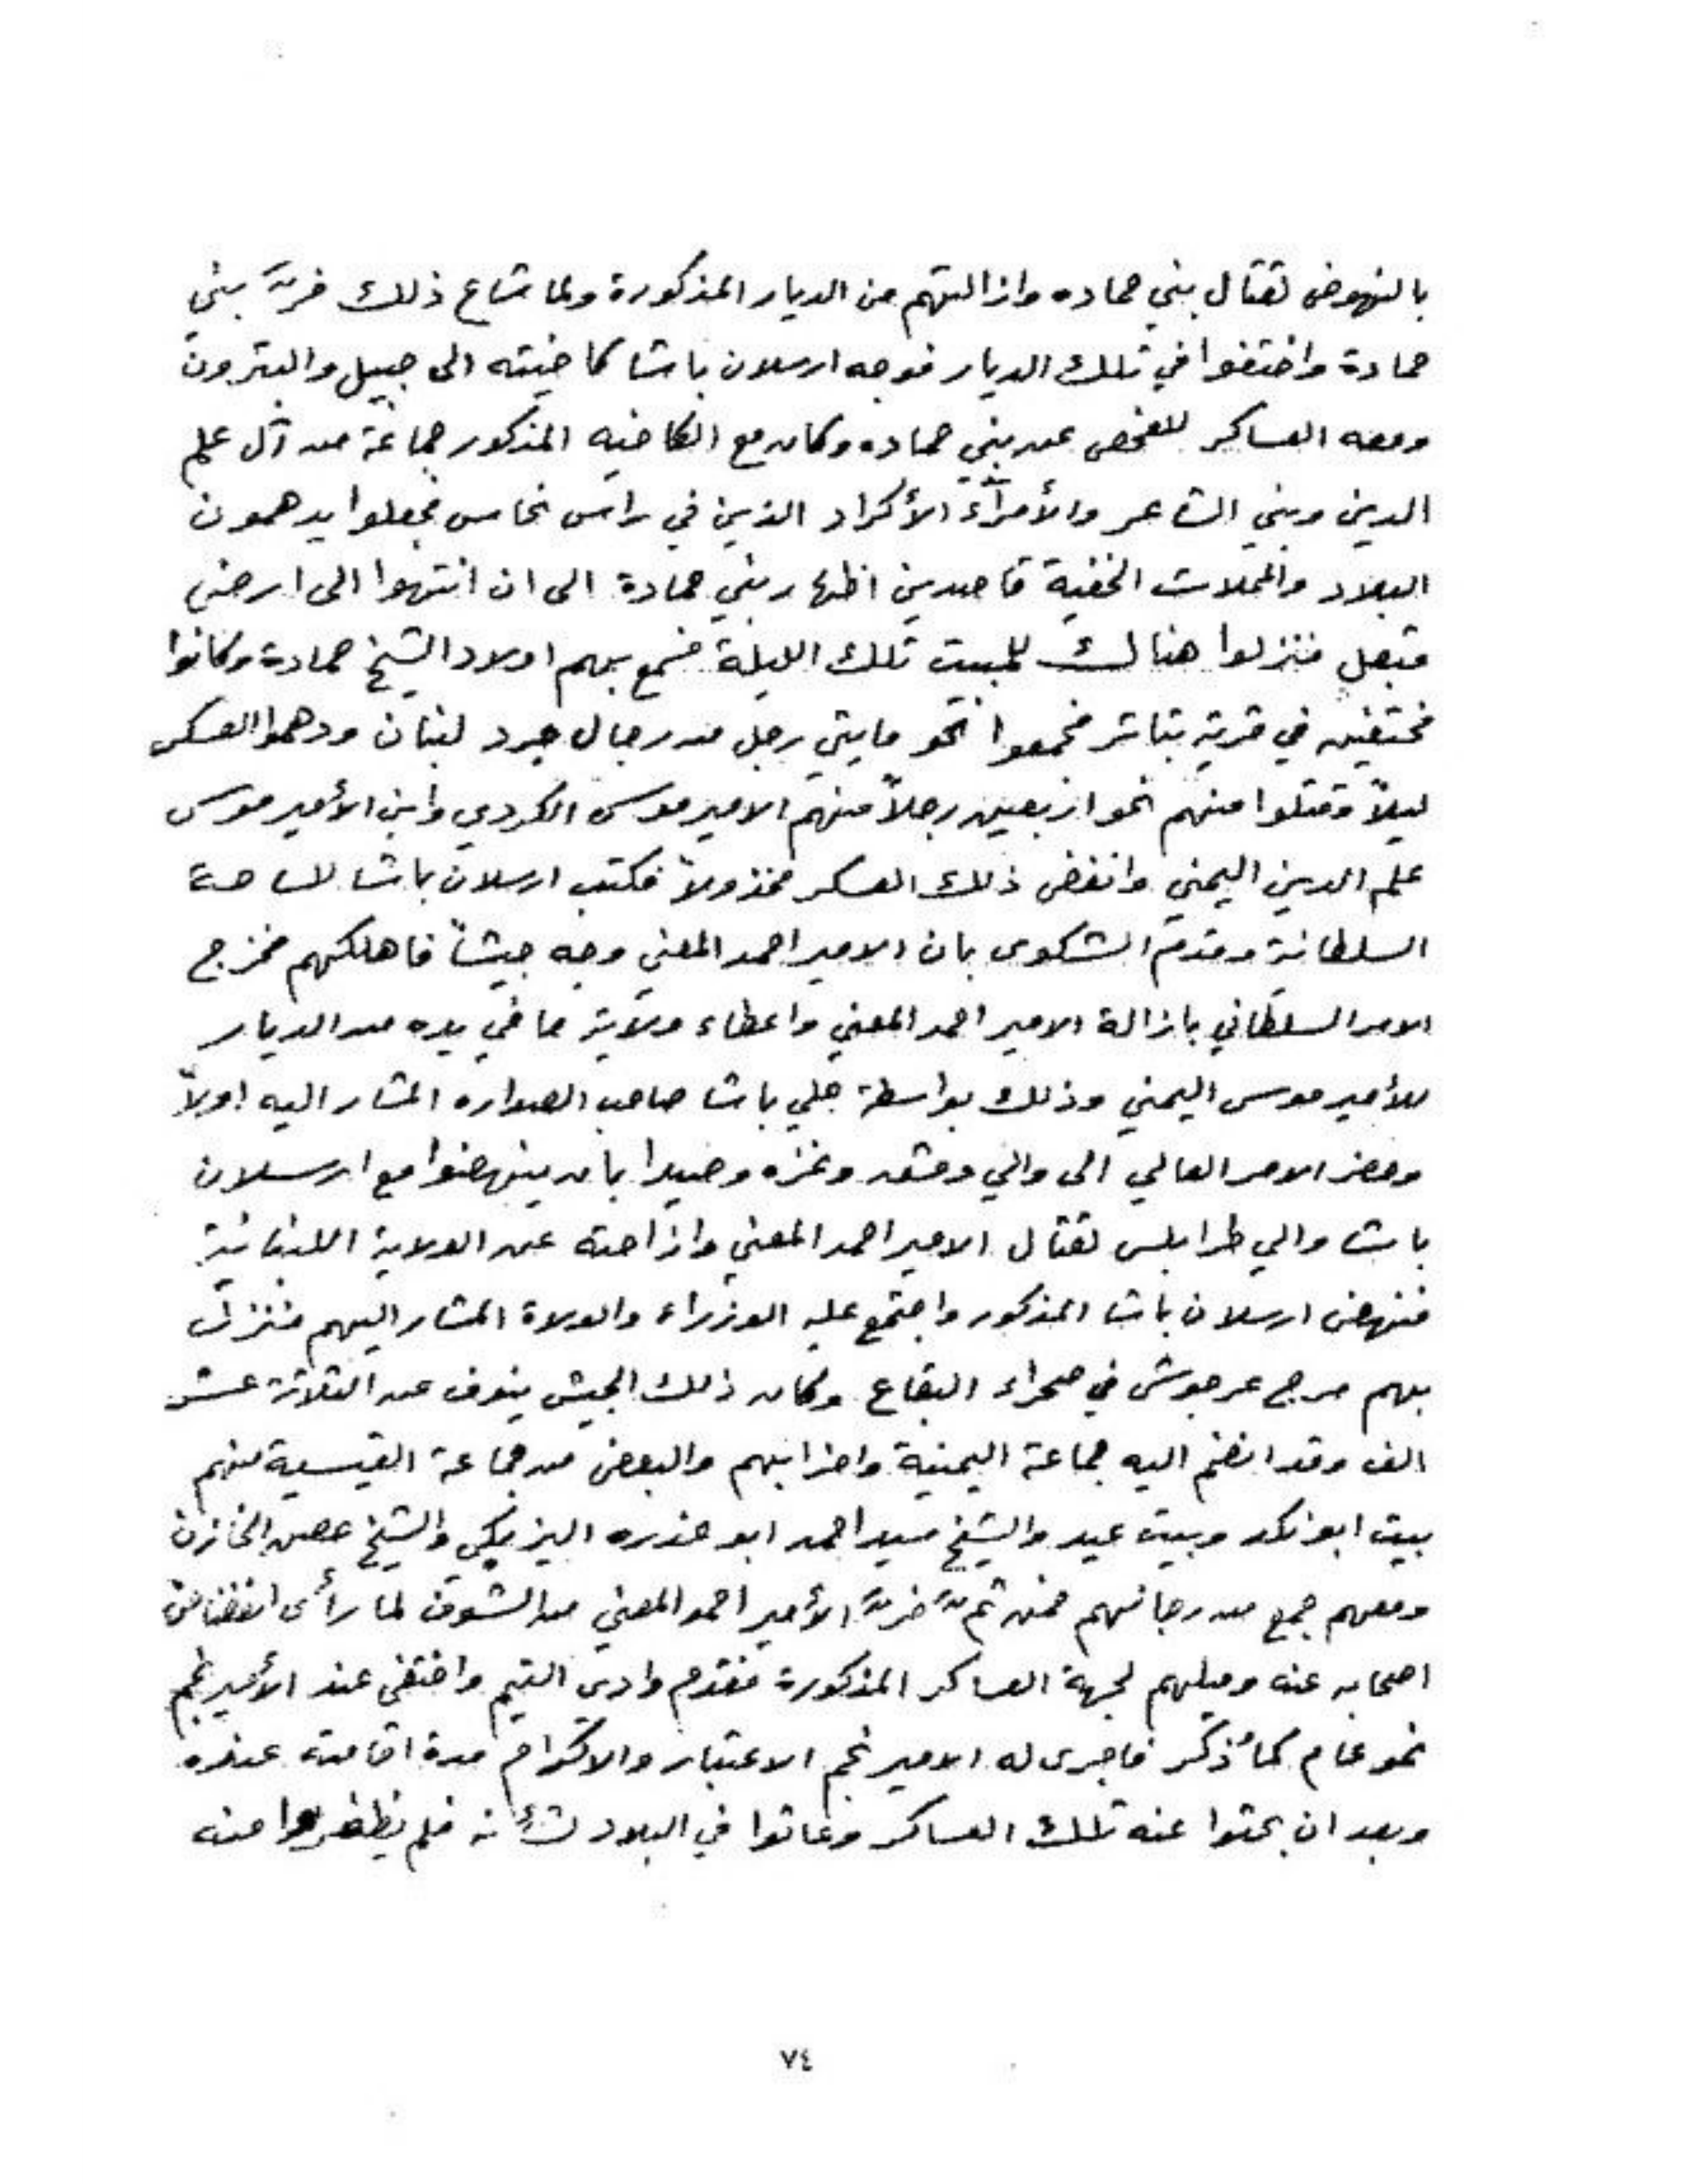 بالنهوض لقتال بني حماده وازالتهم من الديار المذكورة ولما شاع ذلك فرَّ بني
حمادة واختفوا في تلك الديار فوجه ارسلان باشا كاخيته الى جبيل والبترون
ومعه العساكر للفحص عن بني حماده وكان مع الكاخيه المذكور جماعة من آل علم
الدين وبني الشاعر والأمرآء الأكراد الذين في راس نحاس فجعلوا يدهمون
البلاد والمحلات الخفية قاصدين اظهار بني حمادة الى ان انتهوا الى ارضي
فنزلوا هنالك للمبيت تلك الليلة فسمع بهم اولاد الشيخ حمادة وكانوا
مختفين في قرية تباتر فجمعوا نحو مايتي رجل من رجال جرد لبنان ودهموا العسكر
ليلاً وقتلوا منهم نحو اربعين رجلاً منهم الامير موسى الكردي وابن الأمير موسى
علم الدين اليمني وانفض ذلك العسكر مخذولاً فكتب ارسلان باشا للساحة
السلطانية وقدم الشكوى بان الامير احمد المعني وجه جيشاً فاهلكهم فخرج
الامر السلطاني بازالة الامير احمد المعني واعطاء ولاية ما في يده من الديار
للأمير موسى اليمني وذلك بواسطة علي باشا صاحب الصداره المشار اليه اولاً
وحضر الامر العالي الى والي دمشق وغزه وصيدا بان ينهضوا مع ارسلان
باشا والي طرابلس لقتال الامير احمد المعني وازاحته عن الولاية اللبنانية
فنهض ارسلان باشا المذكور واجتمع عليه الوزراء والولاة المشار اليهم فنزل
بهم مرج عرجوش في صحراء البقاع وكان ذلك الجيش ينوف عن الثلاثة عشر
الف وقد انضم اليه جماعة اليمنية واحزابهم والبعض من جماعة القيسية منهم
بيت ابو نكد وبيت عيد والشيخ سيد احمد ابو عذره اليزبكي والشيخ حصن الخازن
ومعهم جمع من رجالهم فمن ثمَّ فرَّ الأمير احمد المعني من الشوف لما رأى انفضاض
اصحابه عنه وميلهم لجهة العساكر المذكورة فقدم وادي التيم واختفى عند الأمير نجم
نحو عام كما ذُكر فاجرى له الامير نجم الاعتبار والاكرام مدة اقامته عنده
وبعد ان بحثوا عنه تلك العساكر وعاثوا في البلاد لشأنه فلم يظفروا منه
٧٤